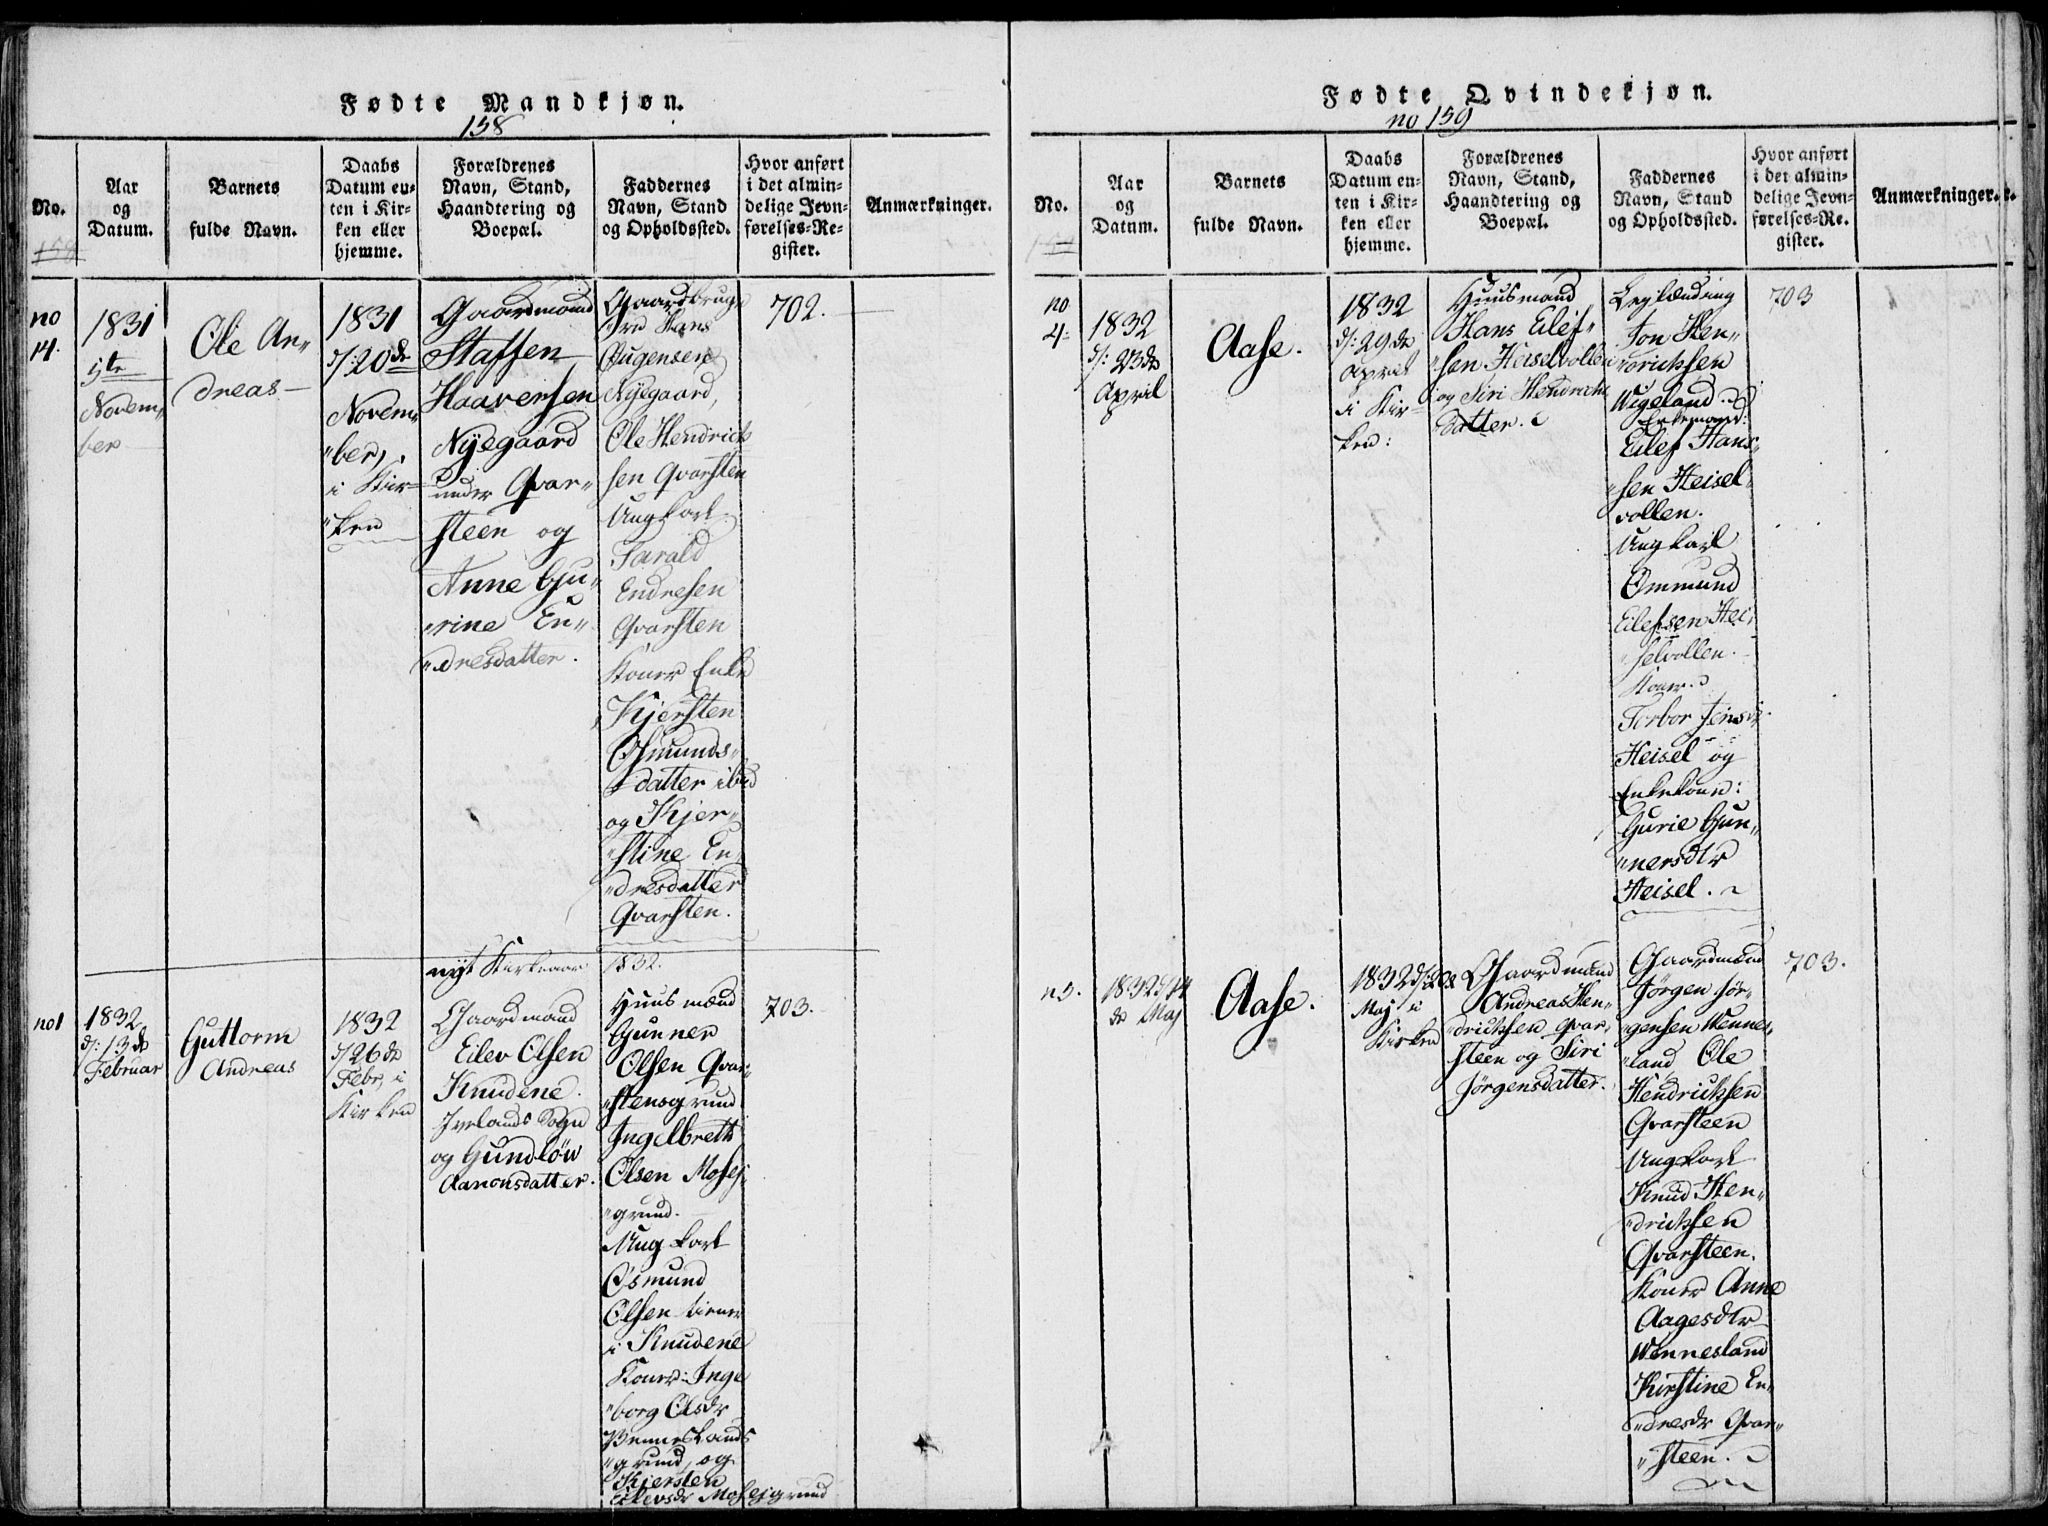 Fødte Mandkjøn.
158
No.
Aar
og
Datum.
Barnets
fulde Navn.
Daabs
Datum en-
ten i Kir-
ken eller
hjemme.
Forældrenes
Navn, Stand,
Haandtering og
Boepæl.
Faddernes
Navn, Stand
og Opholdssted.
Hvor anført
i det almin-
delige Jevn-
førelses-Re-
gister.
Anmærkninger.
no
14.
1831
Novem,,
ber
Ole An,,
dreas
1831
d/:20de
Novem,,
"ber,
i Kir=
"ken
Gaardmand
Staffen
Haavorsen
Nyegaard
under Qvar,,
steen og
Anne Gu,,
"rine En,,
"dresdatter.
Hans
Nyegaard,
Ole Hendrick
sen Qvarsten
Ungkarl
Tarald
Endresen
Qvarsten
Koner Enke
Kjersten
Osmunds,,
datter ibid
og Kjer,,
"stine En,,
"dresdatter
Qvarsten.
702.
nyt Kirkeaar 1832.
no1
1832
d/: 13de
Februar
Guttorm
Andreas
1832
d/26de
Febr, i
Kirken
Gaardmand
Eilev Olsen
Knudene.
Ivelands Sogn
og Gundløw
Aanonsdatter.
Huusmænd
Gunner
Olsen Qvar,,
"stensgrund
Ingelbreth
Olsen Mosej,,
"grund.
Ungkarl
Osmund
Olsen tiener
i Knudene
Koner: Inge
"borg Olsdr
Venneslands
"grund, og
Kjersten
Mosejgrund
703.
Fødte Qvindekjøn.
no 159
No.
Aar
og
Datum.
Barnets
fulde Navn.
Daabs
Datum en-
ten i Kir-
ken eller
hjemme.
Forældrenes
Navn, Stand,
Haandtering og
Boepæl.
Faddernes
Navn, Stand
og Opholdssted.
Hvor anført
i det almin-
delige Jevn-
førelses-Re-
gister.
Anmærkninger.
no
4.
1832
d/: 23de
April
Aase.
1832
d/:29de
April
i Kir-
ken:
Huusmand
Hans Eilef,,
"sen Heiselvollen
og Siri Hendrichs
datter.
Leylænding
Jon Hen,,
"drichsen
Wigeland.
Enkemand:
Eilef Hans,,
"sen Heisel,,
vollen.
Ungkarl
Ommund
Eilefsen Hei,,
"selvollen.
Koner.
Torbor Jensdr.
Heisel og
Enkekone:
Gurie Gun,,
"nersdtr
Heisel.
703
n5.
1832 d/14
de Maj
Aase.
1832 d/:20de
Maj i
Kirken
Gaardmand
Andreas Hen,,
"drichsen Qvar,,
steen og Siri
Jørgensdatter.
Gaardmænd
Jørgen Jør,,
"gensen Wennes,,
"land, Ole
Hendrichsen
Qvarsteen
Ungkarl
Knud Hen,,
"drichsen
Qvarsteen.
Koner Anne
Aagesdtr
Wennesland
Kirstine En,,
"dresdr Qvar,,
"steen.
703.